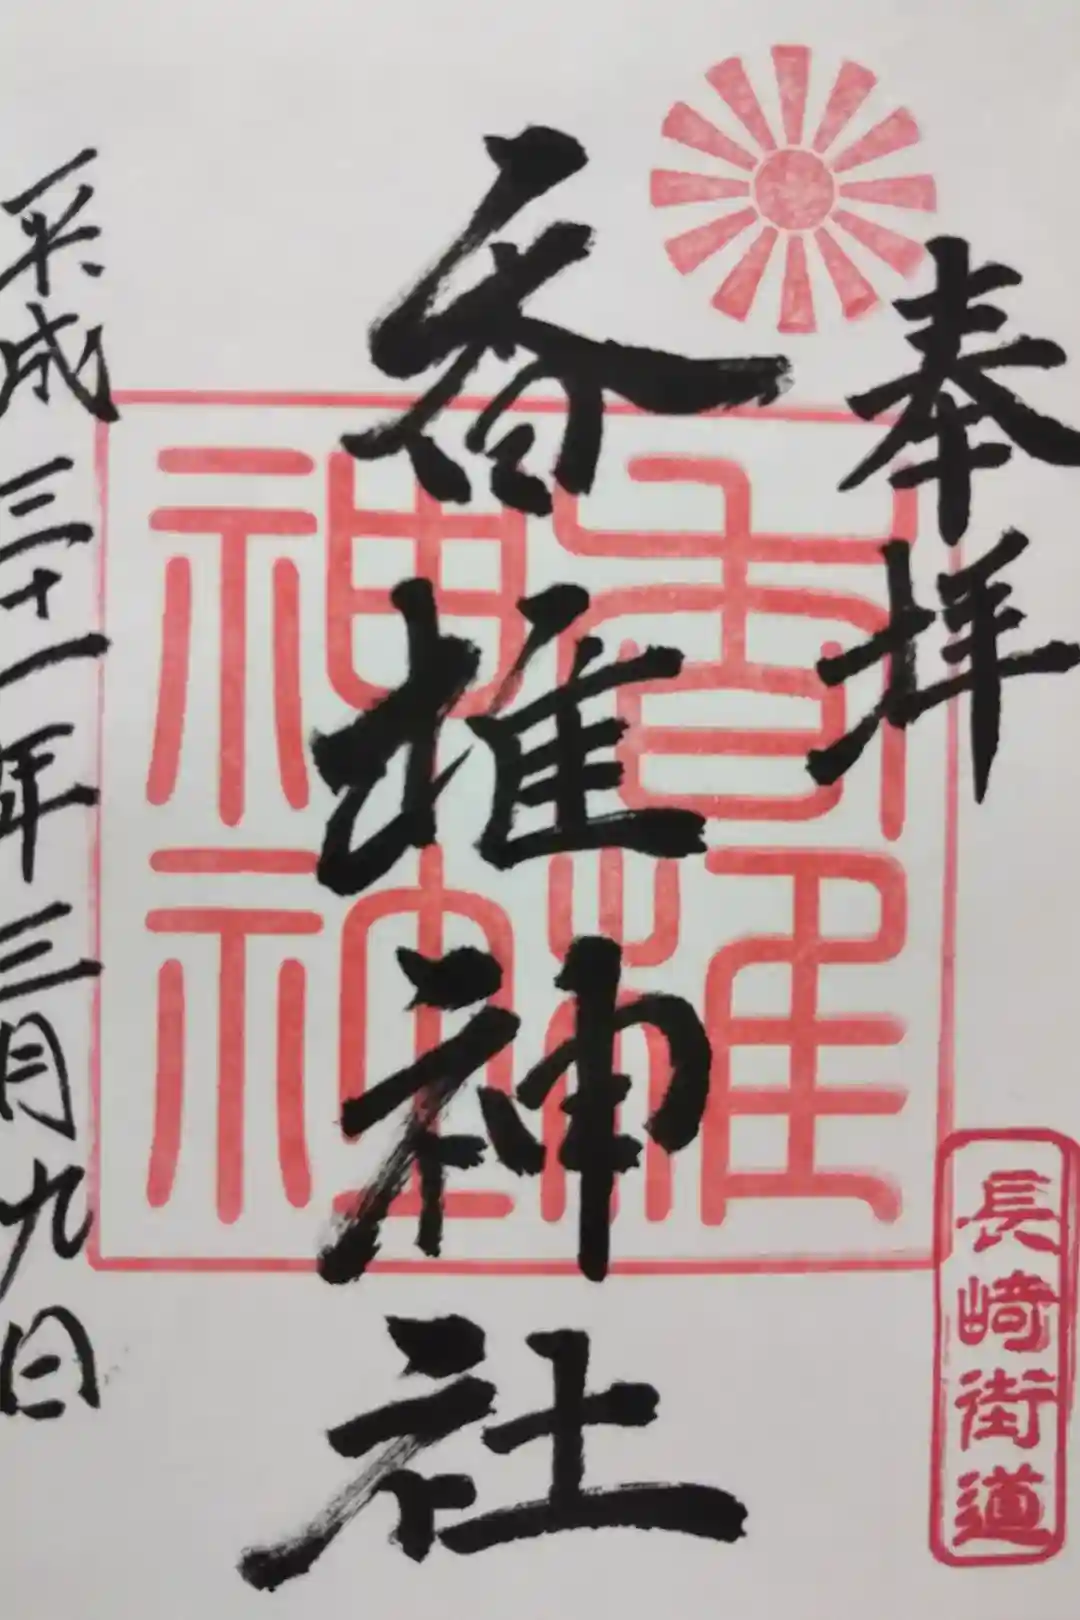 奉拝
長崎街道
香椎神社
香椎
神社
平成三十一年三月九日